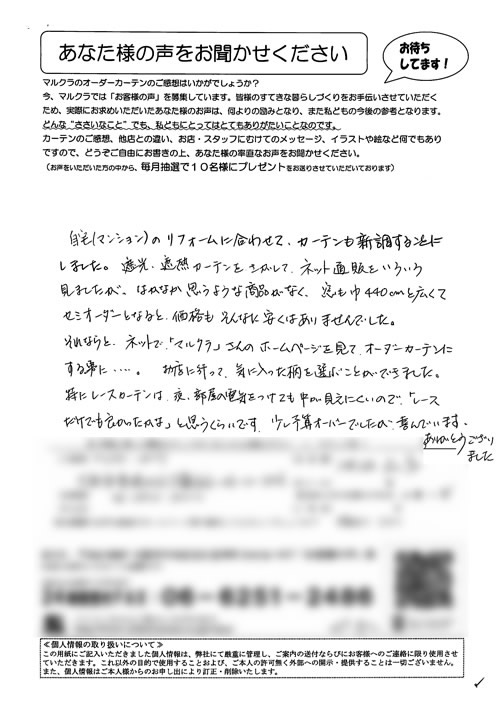 あなた様の声をお聞かせください
お待ち
してます!
マルクラのオーダーカーテンのご感想はいかがでしょうか?
今、マルクラでは「お客様の声」を募集しています。皆様のすてきな暮らしづくりをお手伝いさせていただく
ため、実際にお求めいただいたあなた様のお声は、何よりの励みとなり、また私どもの今後の参考となります。
どんな“ささいなこと”でも、私どもにとってはとてもありがたいことなのです。
カーテンのご感想、他店との違い、お店・スタッフにむけてのメッセージ、イラストや絵など何でもあり
ですので、どうぞご自由にお書きの上、あなた様の率直なお声をお聞かせください。
(お声をいただいた方の中から、毎月抽選で10名様にプレゼントをお送りさせていただいております)
自宅(マンション)のリフォームに合わせて、カーテンも新調する事に
しました。遮光・遮熱カーテンをさがして、ネット通販をいろいろ
見ましたが、なかなか思うような商品がなく、窓も巾440cmと広くて
セミオーダーとなると、価格もそんなに安くはありませんでした。
それならと、ネットで、「マルクラ」さんのホームページを見て、オーダーカーテンに
する事に・・・・。お店に行って、気に入った柄を選ぶことができました。
特にレースカーテンは、夜、部屋の電気をつけても中が見えにくいので、「レース
だけでも良かったかな」と思うくらいです。少し予算オーバーでしたが、喜んでいます。
ありがとうござい
ました
06-6251-2486
≪個人情報の取り扱いについて≫
この用紙にご記入いただきました個人情報は、弊社にて厳重に管理し、ご案内の送付ならびにお客様へのご連絡に限り使用させ
ていただきます。これ以外の目的で使用することおよび、ご本人の許可無く外部への開示・提供することは一切ございません。
また、個人情報はご本人様からのお申し出により訂正・削除いたします。